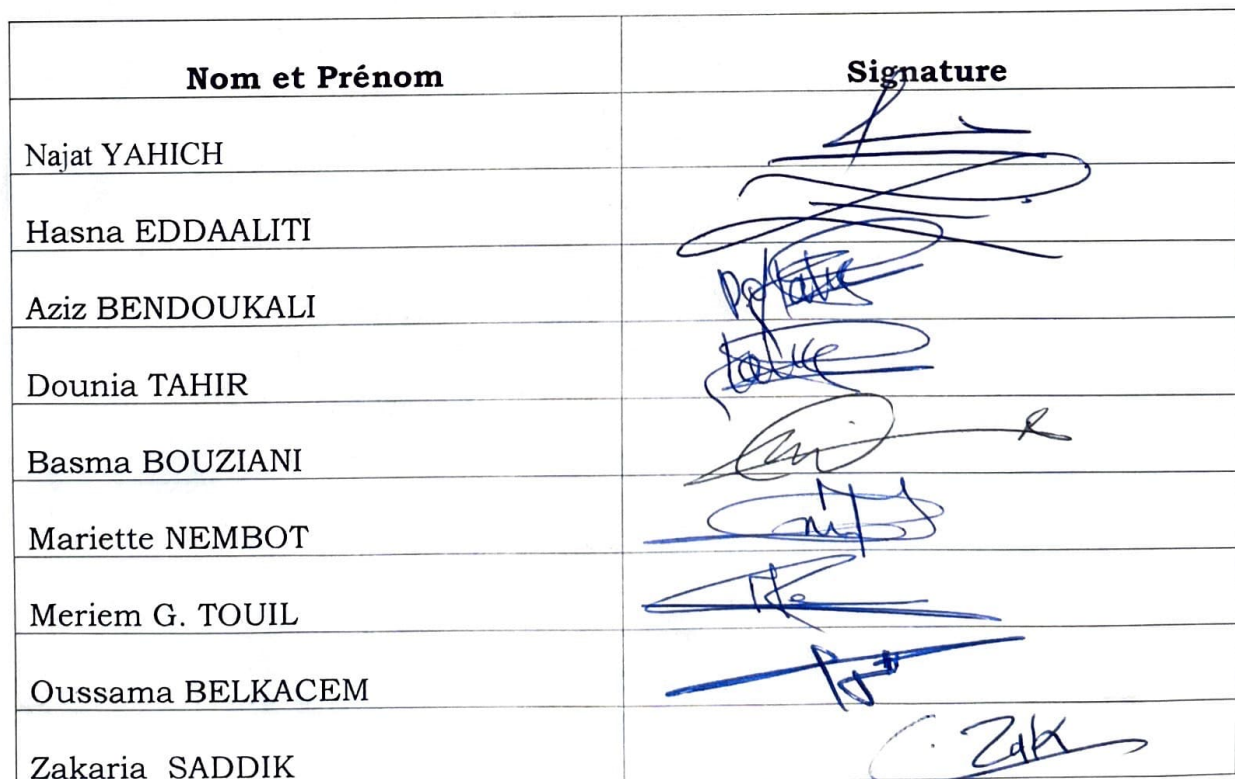 Nom et Prénom Signature
Najat YAHICH
Hasna EDDAALITI
Aziz BENDOUKALI
Dounia TAHIR
Basma BOUZIANI
Mariette NEMBOT
Meriem G. TOUIL
Oussama BELKACEM
Zakaria SADDIK Zak